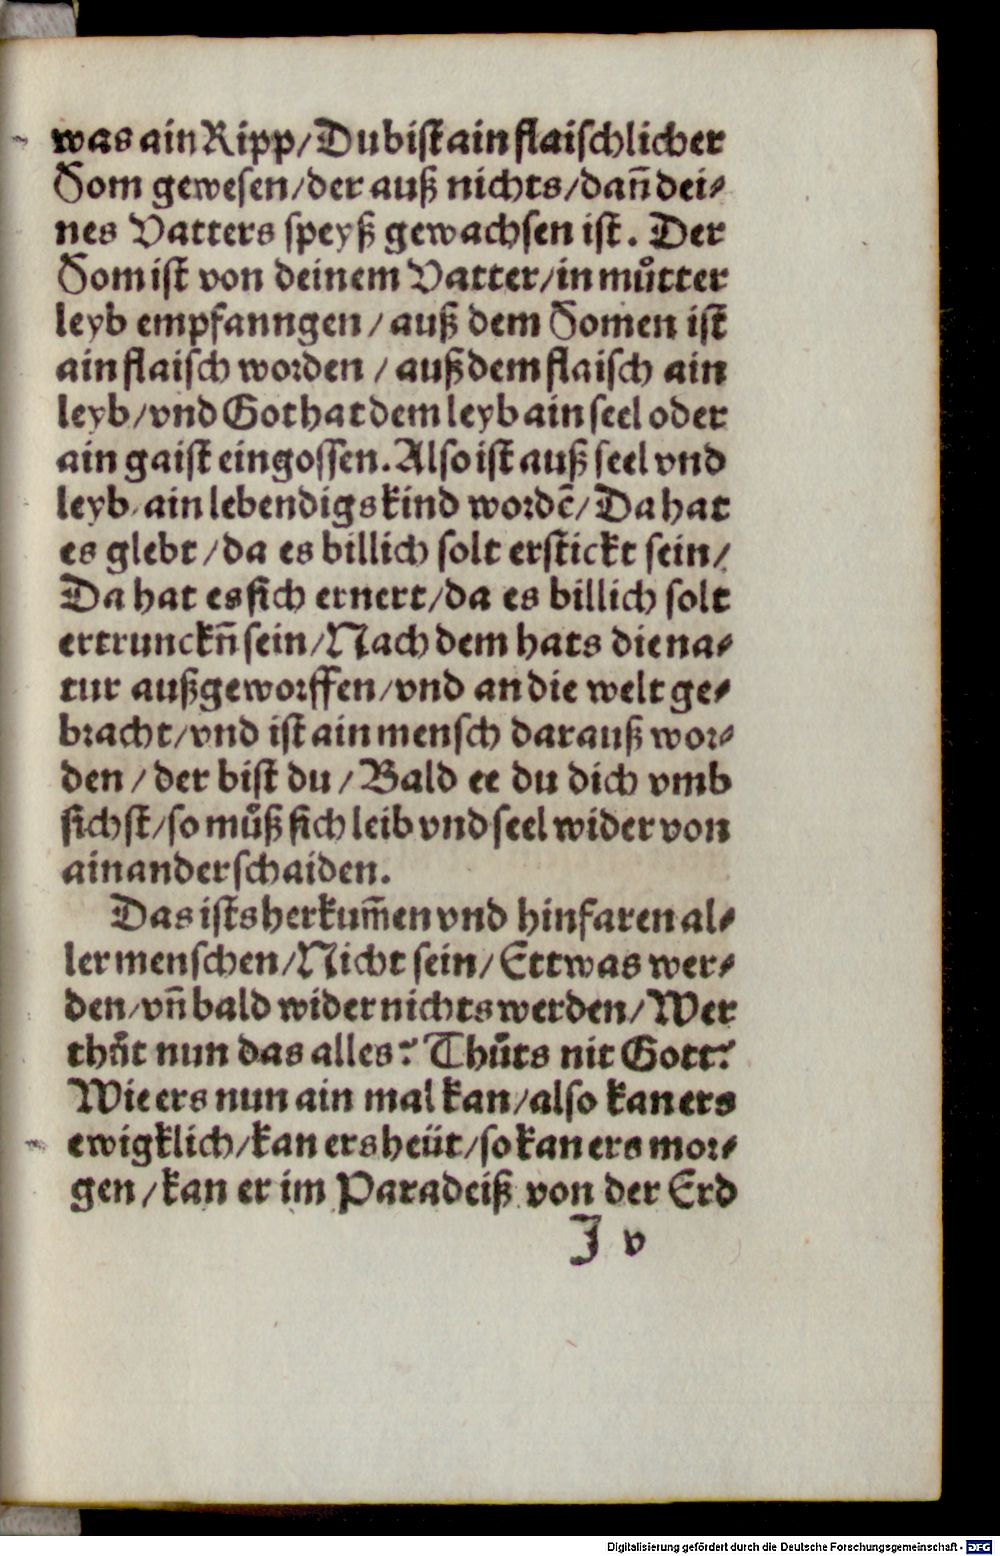 was ain Ripp/ Du bist ain flaischlicher
Som gewesen/ der auß nichts/ dañ dei⸗
nes Vatters speyß gewachsen ist. Der
Som ist von deinem Vatter/ in můtter
leyb empfanngen/ auß dem Somen ist
ain flaisch worden/ auß dem flaisch ain
leyb/ vnd Got hat dem leyb ain seel oder
ain gaist eingossen. Also ist auß seel vnd
leyb/ ain lebendigs kind wordē/ Da hat
es glebt/ da es billich solt erstickt sein/
Da hat es sich ernert/ da es billich solt
ertrunckñ sein/ Nach dem hats die na⸗
tur außgeworffen/ vnd an die welt ge⸗
bracht/ vnd ist ain mensch darauß wor⸗
den/ der bist du/ Bald ee du dich vmb
sichst/ so můß sich leib vnd seel wider von
ainander schaiden.
Das ists herkum̃en vnd hinfaren al⸗
ler menschen/ Nicht sein/ Ettwas wer⸗
den/ vñ bald wider nichts werden/ Wer
thůt nun das alles? Thůts nit Gott?
Wie ers nun ain mal kan/ also kan ers
ewigklich/ kan ers heüt/ so kan ers mor⸗
gen/ kan er im Paradeiß von der Erd
J v
Digitalisierung gefördert durch die Deutsche Forschungsgemeinschaft - DFG